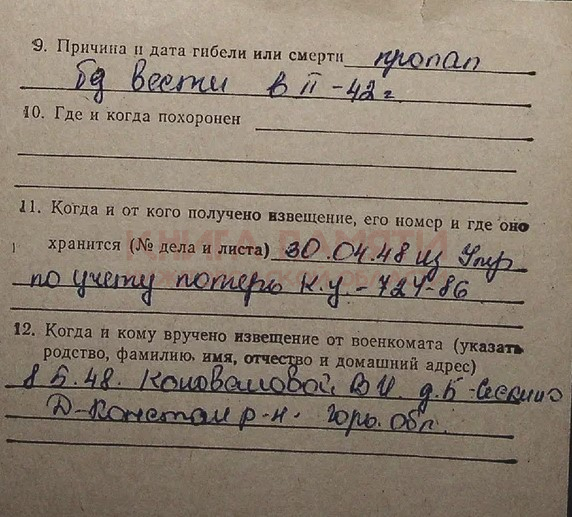 9. Причина и дата гибели или смерти пропал
бз вести в II-42г.
10. Где и когда похоронен
11. Когда и от кого получено извещение, его номер и где оно
хранится (№ дела и листа) 30.04.48 из Упр
по учету потерь н.у-724-86
12. Когда и кому вручено извещение от военкомата (указать
родство, фамилию, имя, отчество и домашний адрес)
8 5.48. Коноваловой В И. д. Б-Сескино
Д-Констан р-н. Горь. обл.
КНИГА ПАМЯТИ